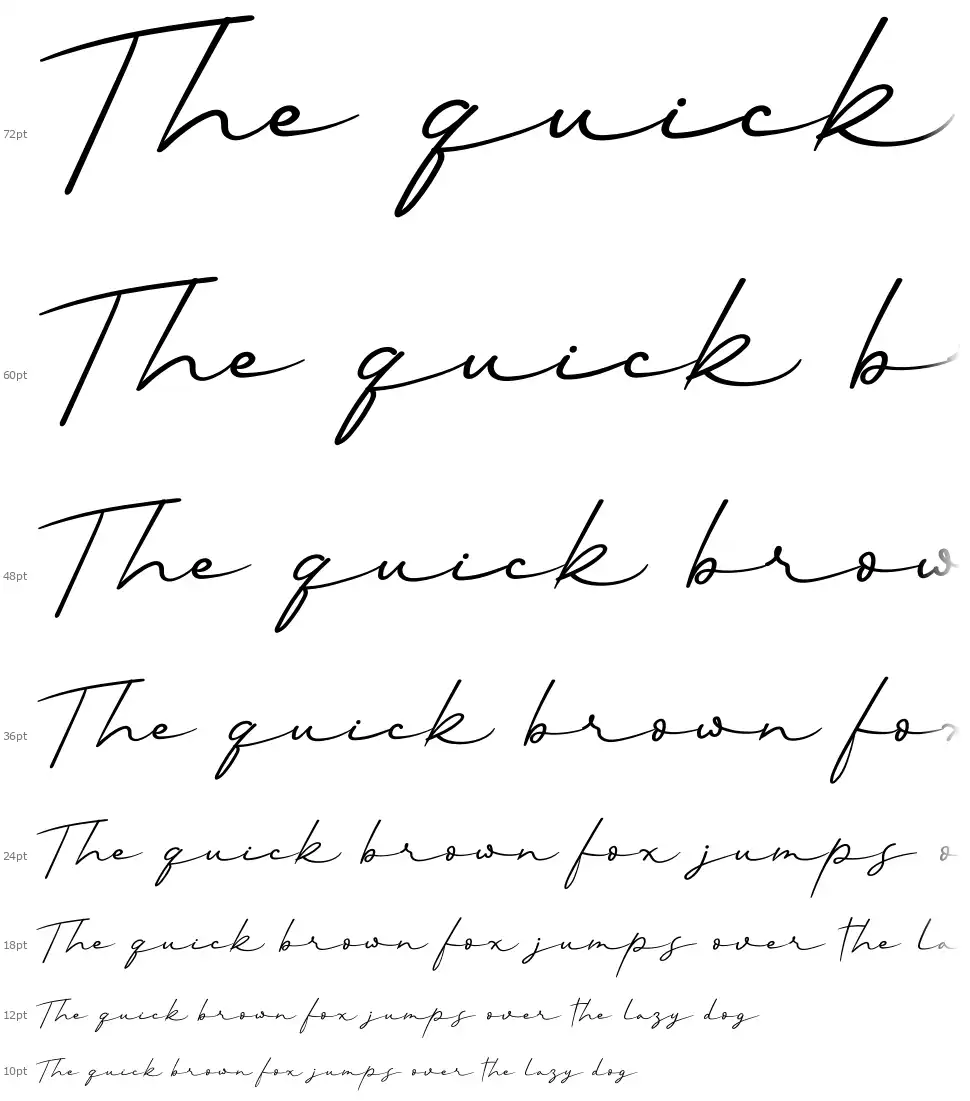 72pt The quick
60pt The quick b
48pt The quick brow
36pt The quick brown fox
24pt The quick brown fox jumps o
18pt The quick brown fox jumps over the la
12pt The quick brown fox jumps over the lazy dog
10pt The quick brown fox jumps over the lazy dog